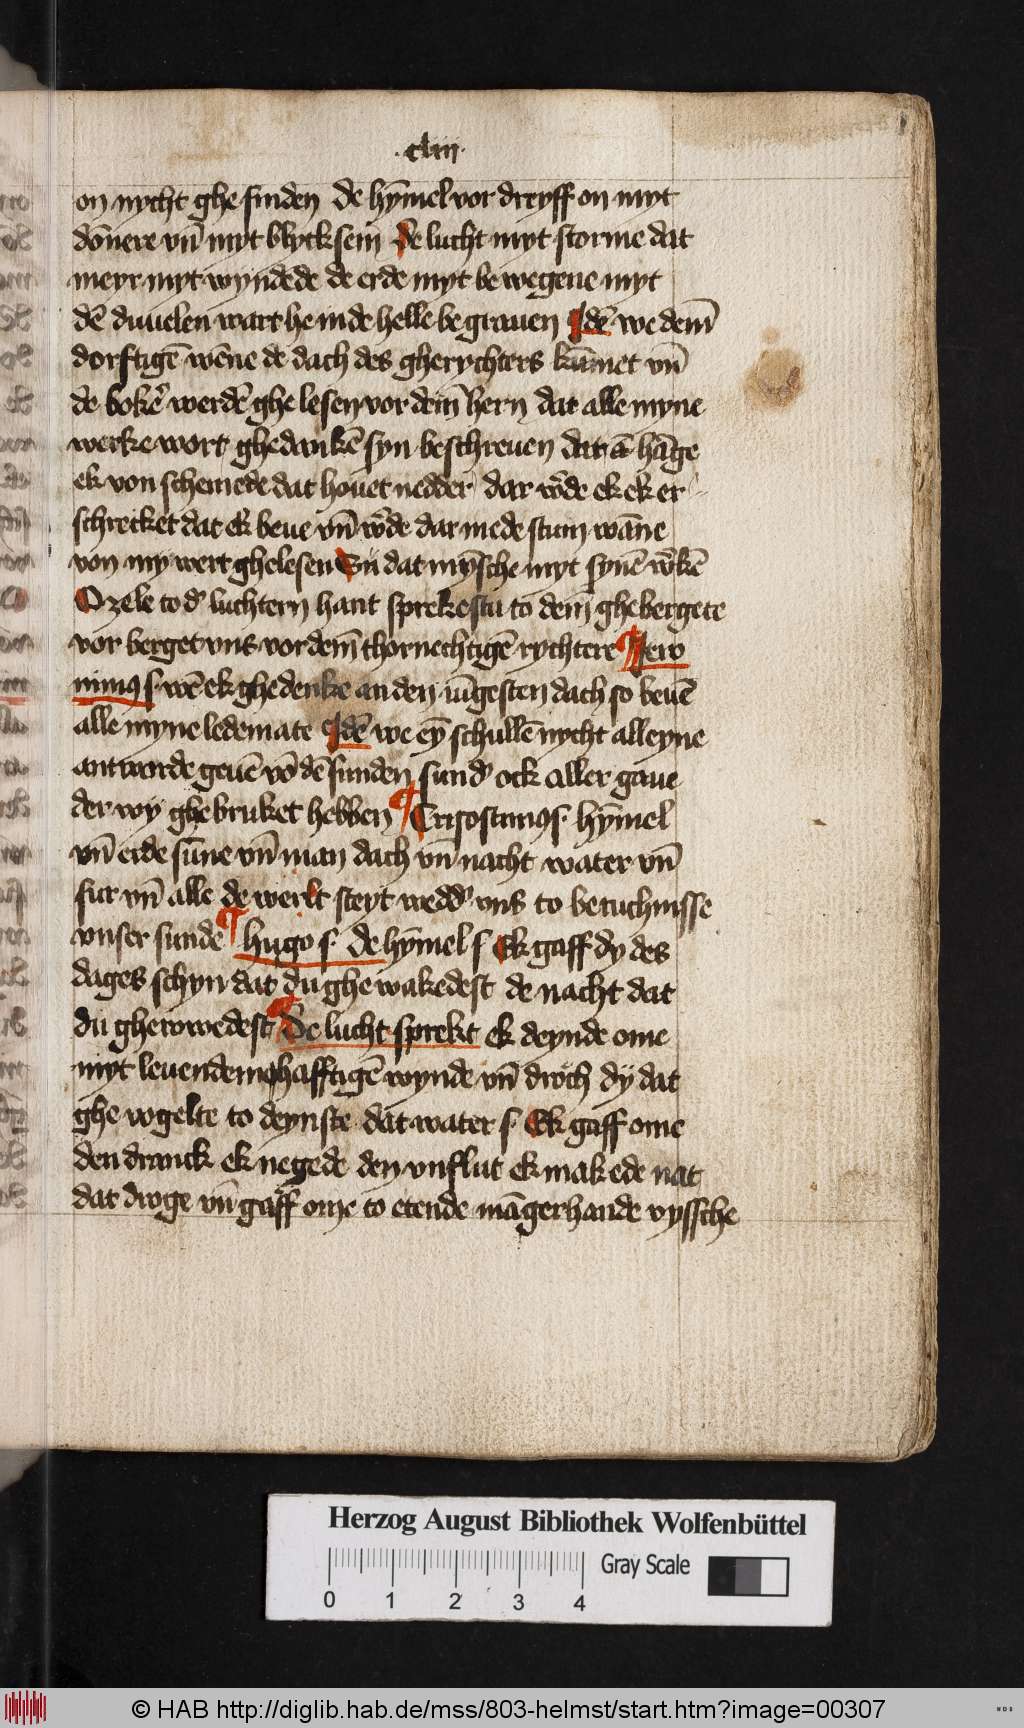 ·cliij·
on nycht ghe finden de hȳmel vor dreyff on myt
dōnere vn̄ myt blycksem De lucht myt storme dat
meyr myt wyndede de erde myt be wegene myt
dē duuelen wart he in de helle be grauen Idē we dem̄
dorftigē wēne de dach des gherychters kūmet vn̄
de bokē werdē ghe lesen vor dem hern dat alle myne
werke wort ghedankē syn beschreuen dat hāge
ek von schemede dat houet nedder dar w̄de ek ek er
schrecket dat ek beue vn̄ w̄de dar mede stum wāne
von my wert ghelesen Vn̄ dat mȳsche myt synē w̄kē
O zele to d' luchtern hant sprekestu to dem ghebergete
vor berget vns vor dem̄ thornechtigē rychtere ¶ Jero
nimus s· wē ek ghedenke an den iūgesten dach so beuē
alle myne ledemate Idē we eȳ schullē nycht alleyne
antworde geuē vō dē sunden sund' ock aller gaue
der wy ghe bruket hebben ¶ Crisostimus s· hȳmel
vn̄ erde sūne vn̄ man dach vn̄ nacht water vn̄
fur vn̄ alle de werlt steyt wedd' vns to betuchnisse
vnser sunde ¶ hugo s· de hȳmel s Ek gaff dy des
dages schyn dat du ghe wakedest de nacht dat
du gherowedest ¶ De lucht sprekt ek deynde ome
myt leuendemohafftigē wynde vn̄ droch dy dat
ghe vogelte to deynste dat water s· Ek gaff ome
den dranck ek negede den vnflut ek makede nat
dat droge vn̄ gaff ome to etende māgerhande vyssche
Herzog August Bibliothek Wolfenbüttel
Gray Scale
0 1 2 3 4
© HAB http://diglib.hab.de/mss/803-helmst/start.htm?image=00307